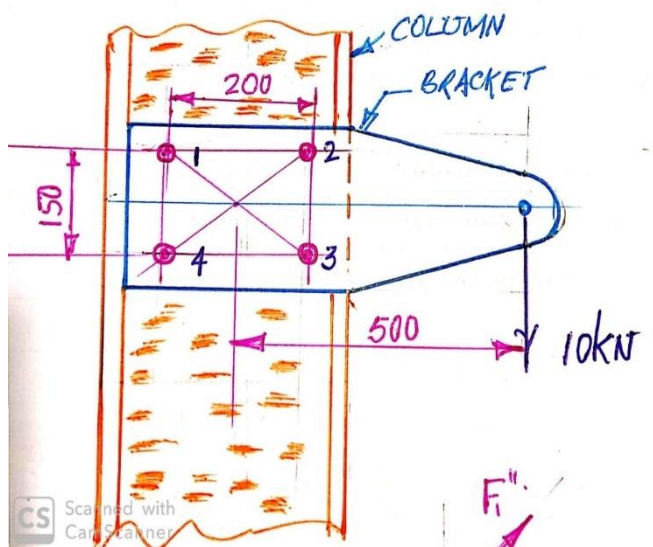 COLUMN
BRACKET
200
1
2
150
4
3
500
10KN
F₁".
CS Scanned with
CamScanner